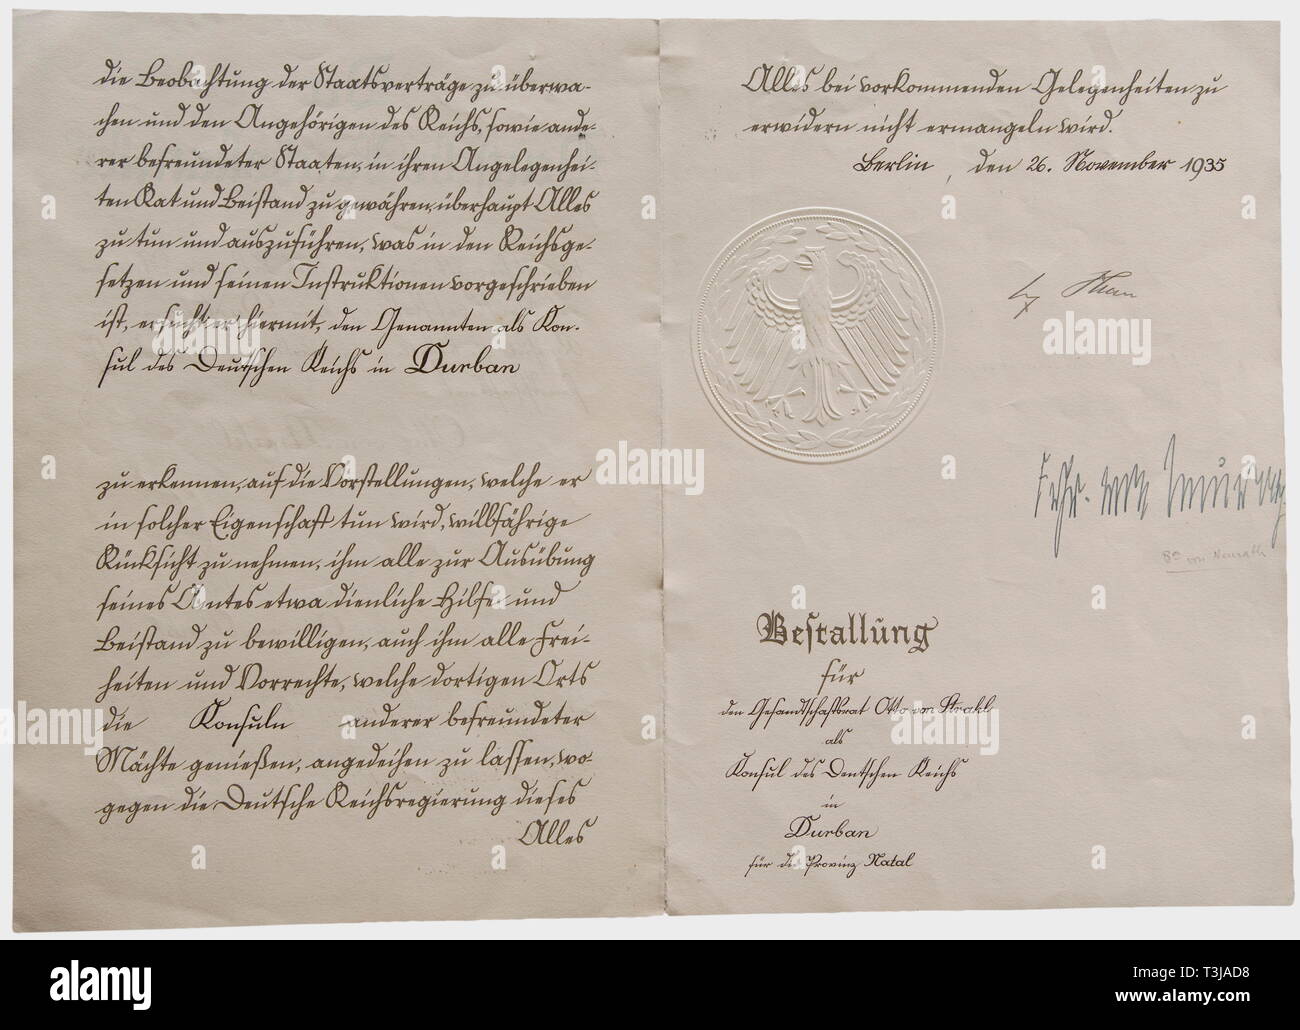 die Beobachtung der Staatsverträge zu überwa-
chen und den Angehörigen des Reichs, sowie ande-
rer befreundeter Staaten, in ihren Angelegenhei-
ten Rat und Beistand zu gewähren, überhaupt Alles
zu tun und auszuführen, was in den Reichsge-
setzen und seinen Instruktionen vorgeschrieben
ist, ersucht er hiermit, den Genannten als Kon-
sul des Deutschen Reichs in Durban
zu erkennen, auf die Vorstellungen, welche er
in solcher Eigenschaft tun wird, willfährige
Rücksicht zu nehmen, ihm alle zur Ausübung
seines Amtes etwa dienliche Hilfe und
Beistand zu bewilligen, auch ihm alle Frei-
heiten und Vorrechte, welche dortigen Orts
die Konsuln anderer befreundeter
Mächte genießen, angedeihen zu lassen, wo-
gegen die Deutsche Reichsregierung dieses
Alles
Alles bei vorkommenden Gelegenheiten zu
erwidern nicht ermangeln wird.
Berlin, den 26. November 1935
Frhr. von Neurath
von Neurath
Bestallung
für
den Gesandtschaftsrat Otto von Strahl
als
Konsul des Deutschen Reichs
in
Durban
für die Provinz Natal
alamy
alamy
alamy
alamy
alamy
Image ID: T3JAD8
www.alamy.com